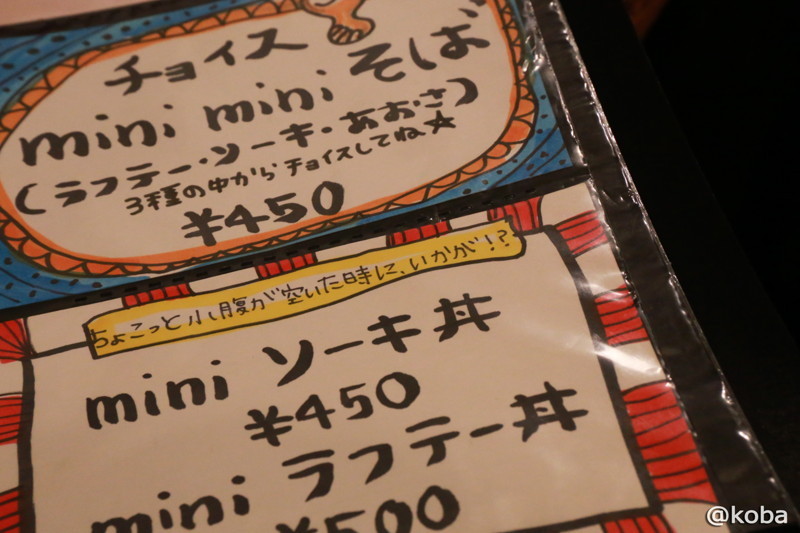 チョイス
mini mini そば
(ラフテー・ソーキ・あおさ)
3種の中からチョイスしてね★
¥450
ちょこっと小腹が空いた時に、いかが!?
mini ソーキ丼
¥450
mini ラフテー丼
¥500
@koba